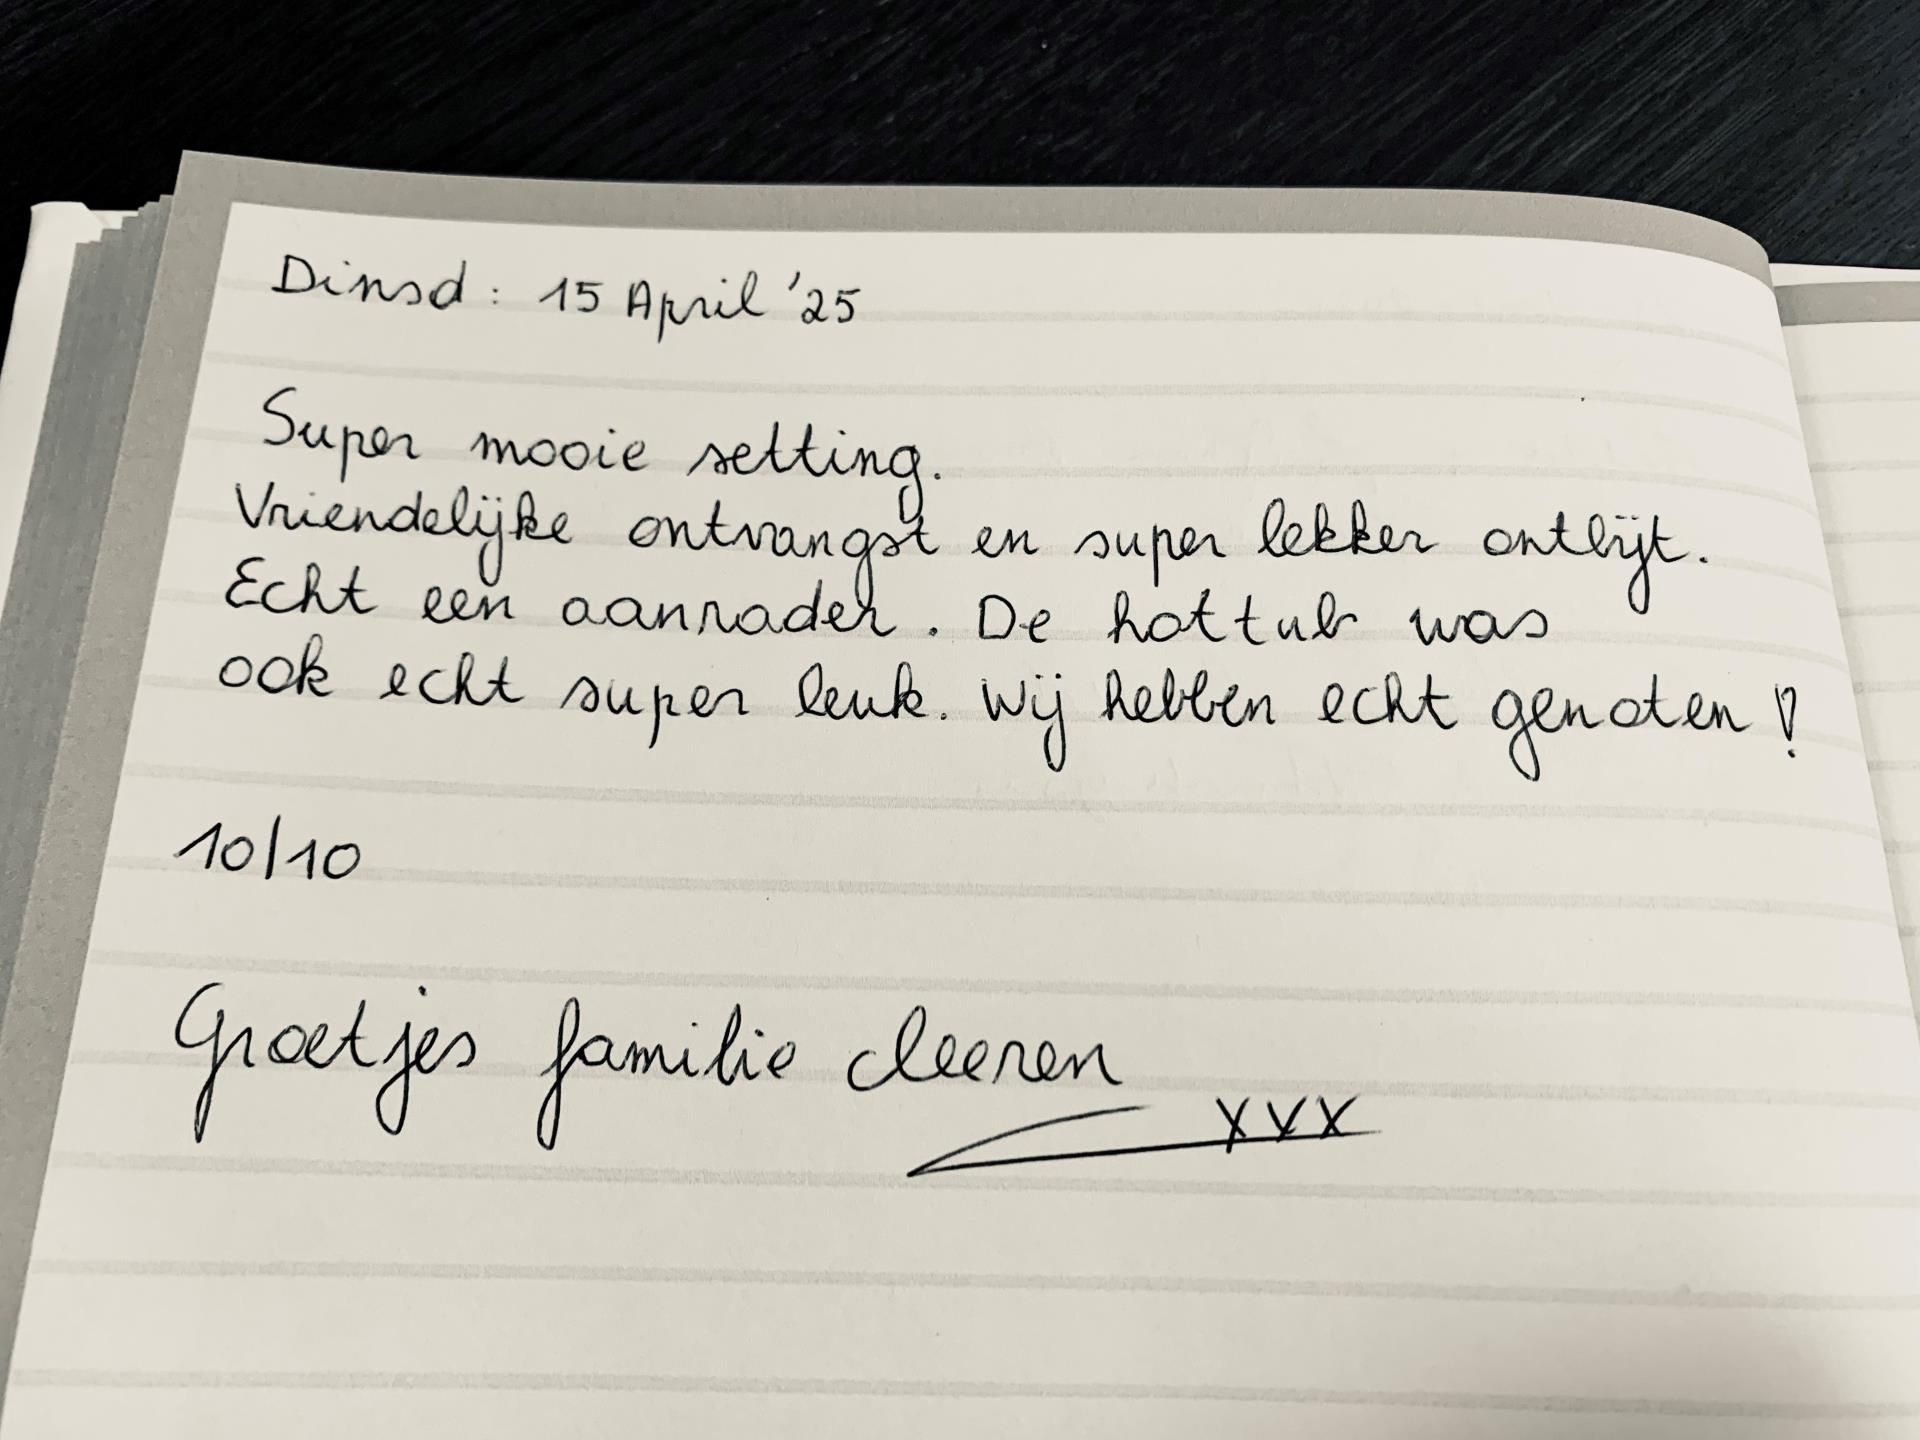 Dinsd : 15 April '25
Super mooie setting.
Vriendelijke ontvangst en super lekker ontbijt.
Echt een aanrader. De hottub was
ook echt super leuk. Wij hebben echt genoten !
10/10
Groetjes familie Cleeren
XXX